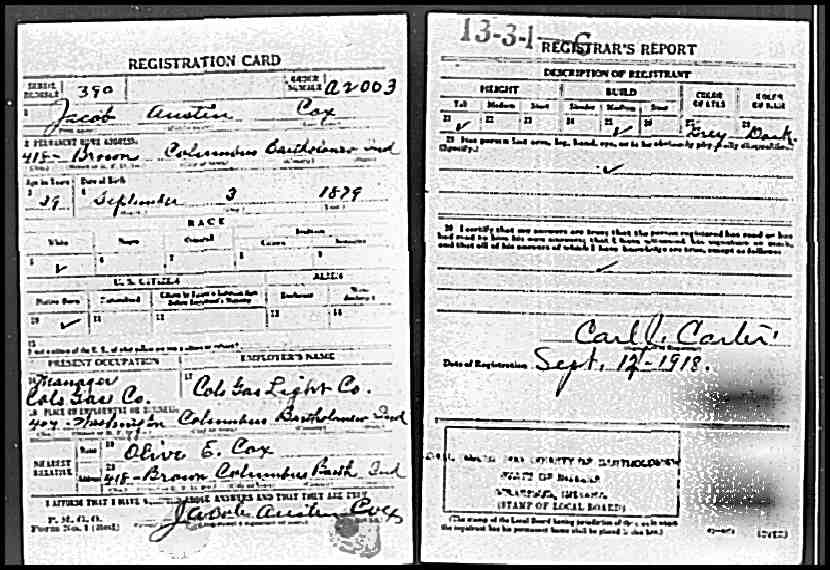 REGISTRATION CARD
SERIAL NUMBER 390
ORDER NUMBER A2003
1 Jacob Austin Cox
2 PERMANENT HOME ADDRESS:
418- Brown Columbus Bartholomew Ind
Age in Years Date of Birth
39 September 3 1879
RACE
White Negro Oriental Indian
Citizen
5 ✓ 6 7 8 9
U. S. CITIZEN ALIEN
Native Born Naturalized
10 ✓ 11 12 13 14
15
If not a citizen of the U. S., of what nation are you a citizen or subject?
PRESENT OCCUPATION EMPLOYER'S NAME
16 Manager 17
Cols Gas Co. Cols Gas Light Co.
18 PLACE OF EMPLOYMENT OR BUSINESS:
Washington Columbus Bartholomew Ind
NEAREST RELATIVE
Name 19 Olive E. Cox
Address 20 418- Brown Columbus Barth Ind
I AFFIRM THAT I HAVE ABOVE ANSWERS AND THAT THEY ARE TRUE
P. M. G. O.
Form No. 1 (Red)
Jacob Austin Cox
13-3-1-C
REGISTRAR'S REPORT
DESCRIPTION OF REGISTRANT
HEIGHT BUILD COLOR OF EYES COLOR OF HAIR
Tall Medium Short Slender Medium Stout
21 ✓ 22 23 24 25 ✓ 26 27 Grey 28 Dark
29 Has person lost arm, leg, hand, eye, or is he obviously physically disqualified?
(Specify.)
✓
30 I certify that my answers are true; that the person registered has read or has
had read to him his own answers; that I have witnessed his signature or mark,
and that all of his answers of which I have knowledge are true, except as follows:
✓
Carl J. Carter
Date of Registration Sept. 12-1918.
LOCAL BOARD FOR COUNTY OF BARTHOLOMEW
STATE OF INDIANA
COLUMBUS, INDIANA
(STAMP OF LOCAL BOARD)
(The stamp of the Local Board having jurisdiction of the area in which
the registrant has his permanent home shall be placed in this box.)
(OVER)